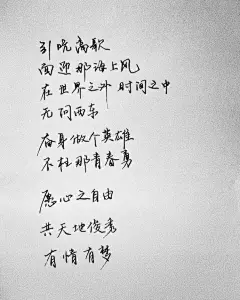 引吭高歌
面迎那海上风
在世界之外 时间之中
无问西东
奋身做个英雄
不枉那青春勇
愿心之自由
共天地俊秀
有情有梦